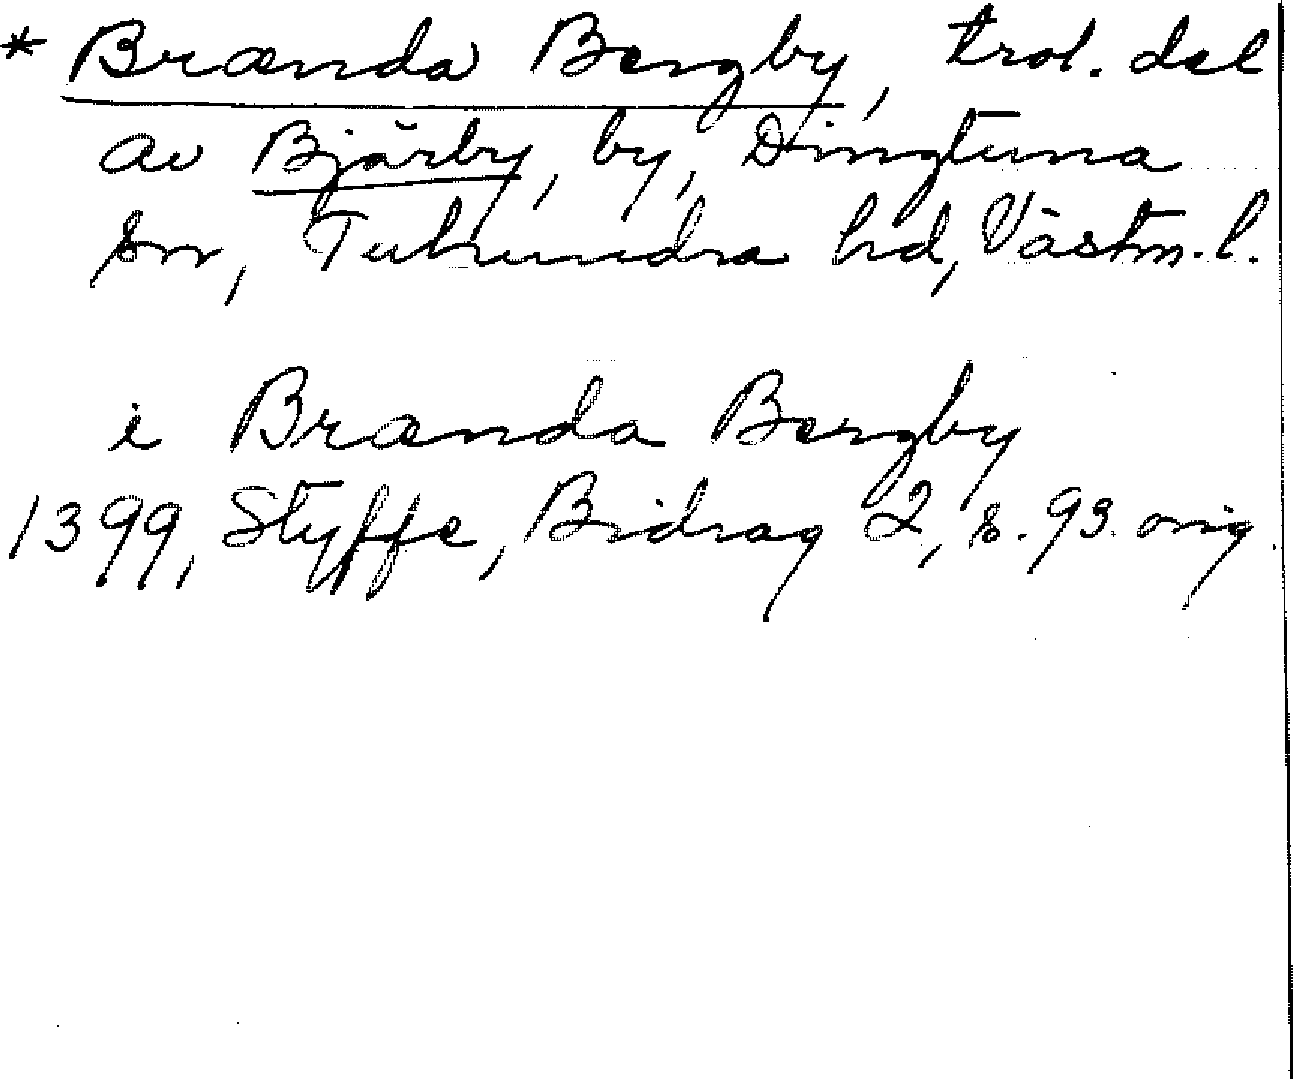 * Brænda Bergby, trol. del
av Bjärby, by, Dingtuna
sn, Tuhundra hd, Västm. l.
i Brænda Bergby
1399, Styffe, Bidrag 2, s. 93. orig.